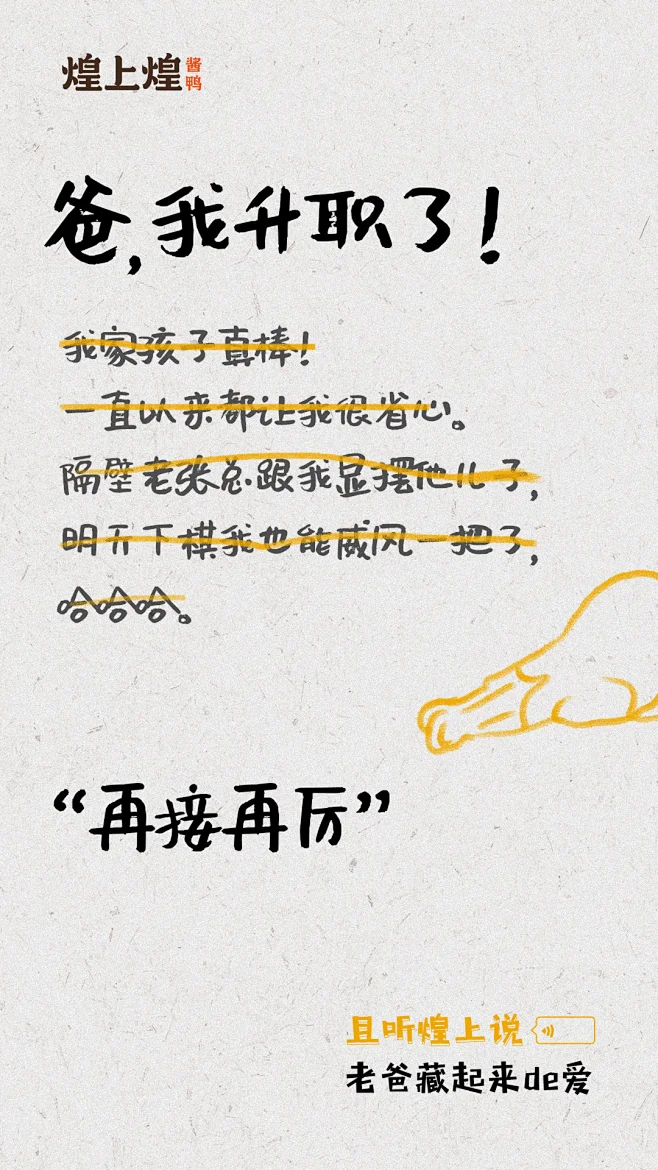 煌上煌 酱鸭
爸,我升职了!
我家孩子真棒!
一直以来都让我很省心。
隔壁老张总跟我显摆他儿子,
明天下棋我也能威风一把了,
哈哈哈。
“再接再厉”
且听煌上说
老爸藏起来de爱